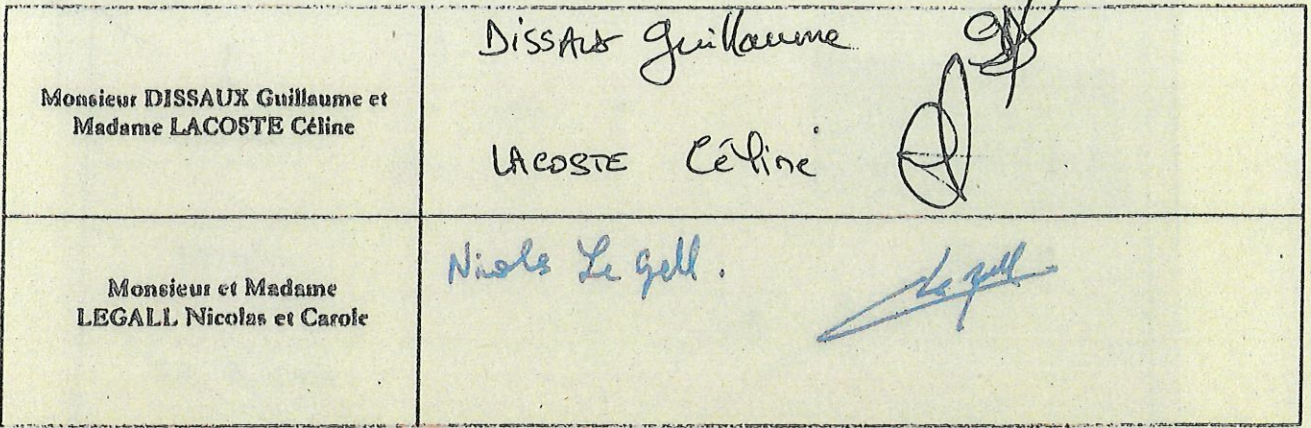 Monsieur DISSAUX Guillaume et
Madame LACOSTE Céline
DISSAUX Guillaume
LACOSTE Céline
Monsieur et Madame
LEGALL Nicolas et Carole
Nicolas Le Gall.
Le Gall